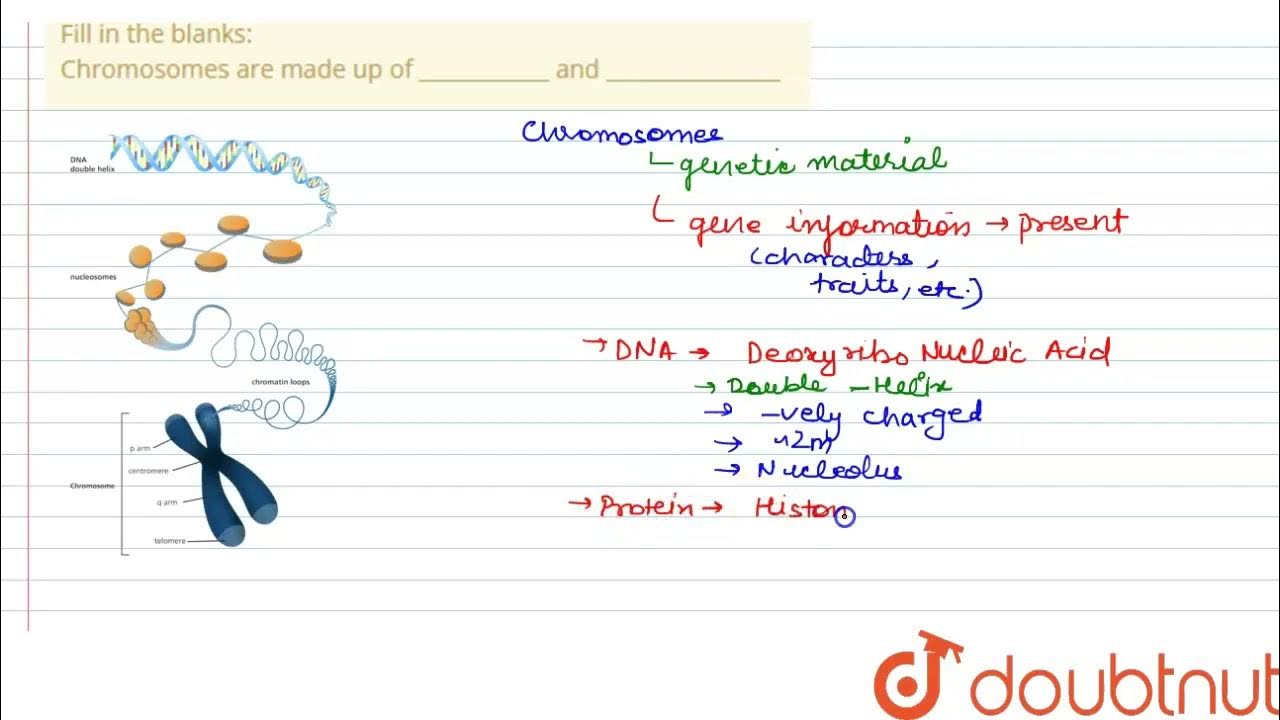 Fill in the blanks:
Chromosomes are made up of __________ and _____________
DNA
double helix
nucleosomes
chromatin loops
p arm
centromere
Chromosome
q arm
telomere
Chromosomes
genetic material
gene information → present
(characters,
traits, etc.)
→ DNA → Deoxyribo Nucleic Acid
→ Double - Helix
→ -vely charged
→ ~2m
→ Nucleolus
→ Protein → Histon
doubtnut